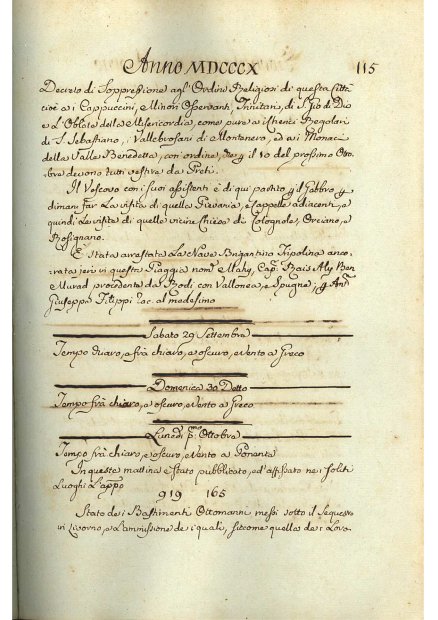 Anno MDCCCX 115
Decreto di Soppressione agl' Ordini Religiosi di questa Città
cioè a i Cappuccini, Minori Osservanti, Trinitari, di S. Gio di Dio
e l'Oblate della Misericordia, come pure a i Cherici Regolari
di S. Sebastiano, i Vallebrosani di Montenero, ed a i Monaci
della Valle Benedetta, con ordine, che il 10 del prossimo Otto-
bre devono tutti vestire da Preti.
Il Vescovo con i suoi assistenti è di qui partito p il Gabbro p
dimani far la visita di quella Pievania, e Cappelle adiacenti, e
quindi la visita di quelle vicine Chiese di Cologniole, Orciano, e
Rosignano.
È Stata arrestata la Nave Brigantino Tripolino anco-
rata jeri in questa Piaggia nom. Mahy, Cap. Rais Aly Ben
Murad procedente da Rodi con Vallonea, e Spugne; p Ant.
Giuseppe Filippi rac. al medesimo
Sabato 29 Settembre
Tempo vario, e frà chiaro, e oscuro, e Vento a Greco
Domenica 30 Detto
Tempo frà chiaro, e oscuro, e Vento a Greco
Lunedì pmo Ottobre
Tempo frà chiaro, e oscuro, e Vento a Ponente
In questa mattina è stato pubblicato, ed affissato ne i soliti
Luoghi l'app.o
919 165
Stato de i Bastimenti Ottomanni messi sotto il Sequestro
in Livorno, e l'ammissione de i quali, siccome quella de i Loro-